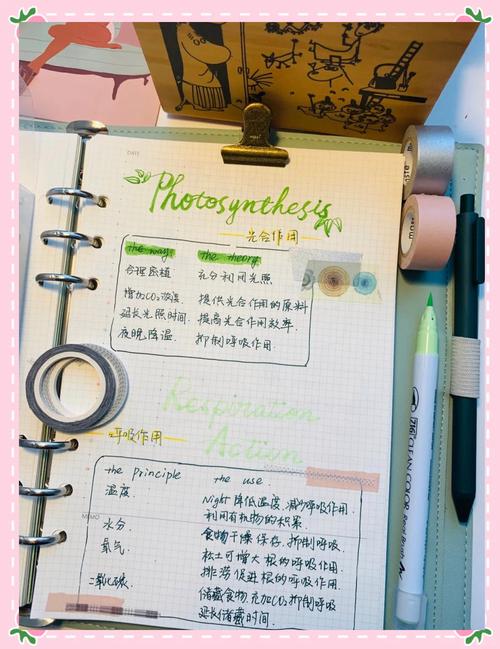 DATE
Photosynthesis
光合作用
the way the theory
合理密植 充分利用光照
增加CO₂浓度 提供光合作用的原料
延长光照时间. 提高光合作用效率.
夜晚降温 抑制呼吸作用.
Respiration
Action
呼吸作用
the principle the use
温度 Night 降低温度,减少呼吸作用.
利于有机物的积累.
MEMO
水分. 食物干燥保存.抑制呼吸.
氧气. 松土可增大根的呼吸作用.
排涝促进根的呼吸作用.
二氧化碳. 储藏食物,充加CO₂抑制呼吸
延长储藏时间.
ZIG CLEAN COLOR Real Brush